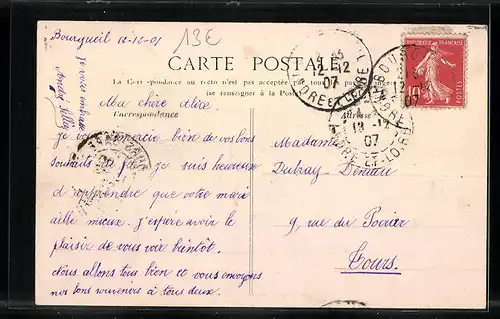 Bourgueil 12-12-07
13€
CARTE POSTALE
La Correspondance au recto n'est pas acceptée par tous
se renseigner à la Poste
Correspondance
Adresse
Je vous embrasse
Ma chère Alice.
Je remercie bien de vos bons
souhaits. Je suis heureuse
d'apprendre que votre mari
aille mieux. J'espère avoir le
plaisir de vous voir bientôt.
Nous allons tous bien et vous envoyons
nos bons souvenirs à tous deux.
Madame
Dubray-Deniau
9, rue du Poirier
Tours.
12-12
07
INDRE ET LOIRE
12-12
07
12-12
07
INDRE-ET-LOIRE
10
POSTES